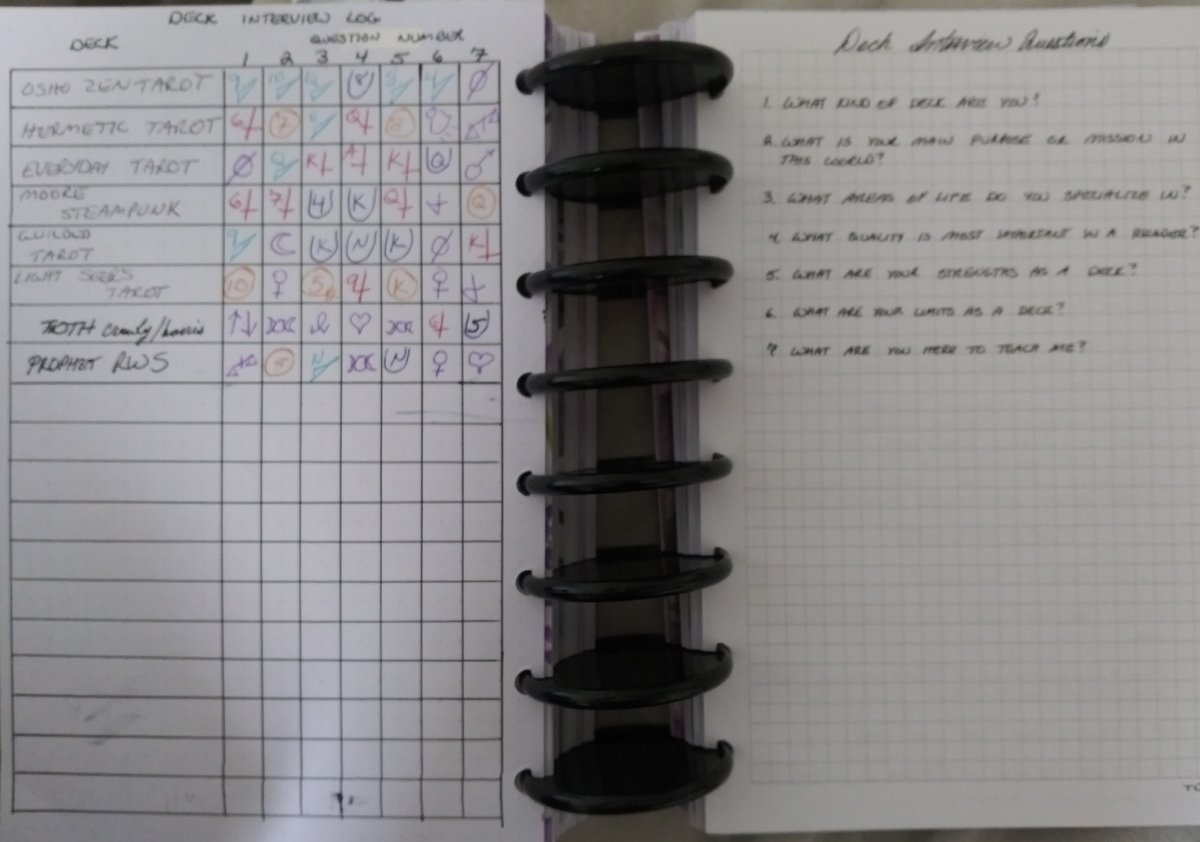 DECK INTERVIEW LOG
DECK
QUESTION NUMBER
1 2 3 4 5 6 7
OSHO ZEN TAROT
HERMETIC TAROT 6 7 Q
EVERYDAY TAROT K K Q
MOORE 6 7 4 K Q Q
STEAMPUNK
GUILDED K N K K
TAROT
LIGHT SEERS 10 5 K
TAROT
TOTH crowly/harris 5
PROPHET RWS N
Deck Interview Questions
1. WHAT KIND OF DECK ARE YOU?
2. WHAT IS YOUR MAIN PURPOSE OR MISSION IN
THIS WORLD?
3. WHAT AREAS OF LIFE DO YOU SPECIALIZE IN?
4. WHAT QUALITY IS MOST IMPORTANT IN A READER?
5. WHAT ARE YOUR STRENGTHS AS A DECK?
6. WHAT ARE YOUR LIMITS AS A DECK?
7. WHAT ARE YOU HERE TO TEACH ME?